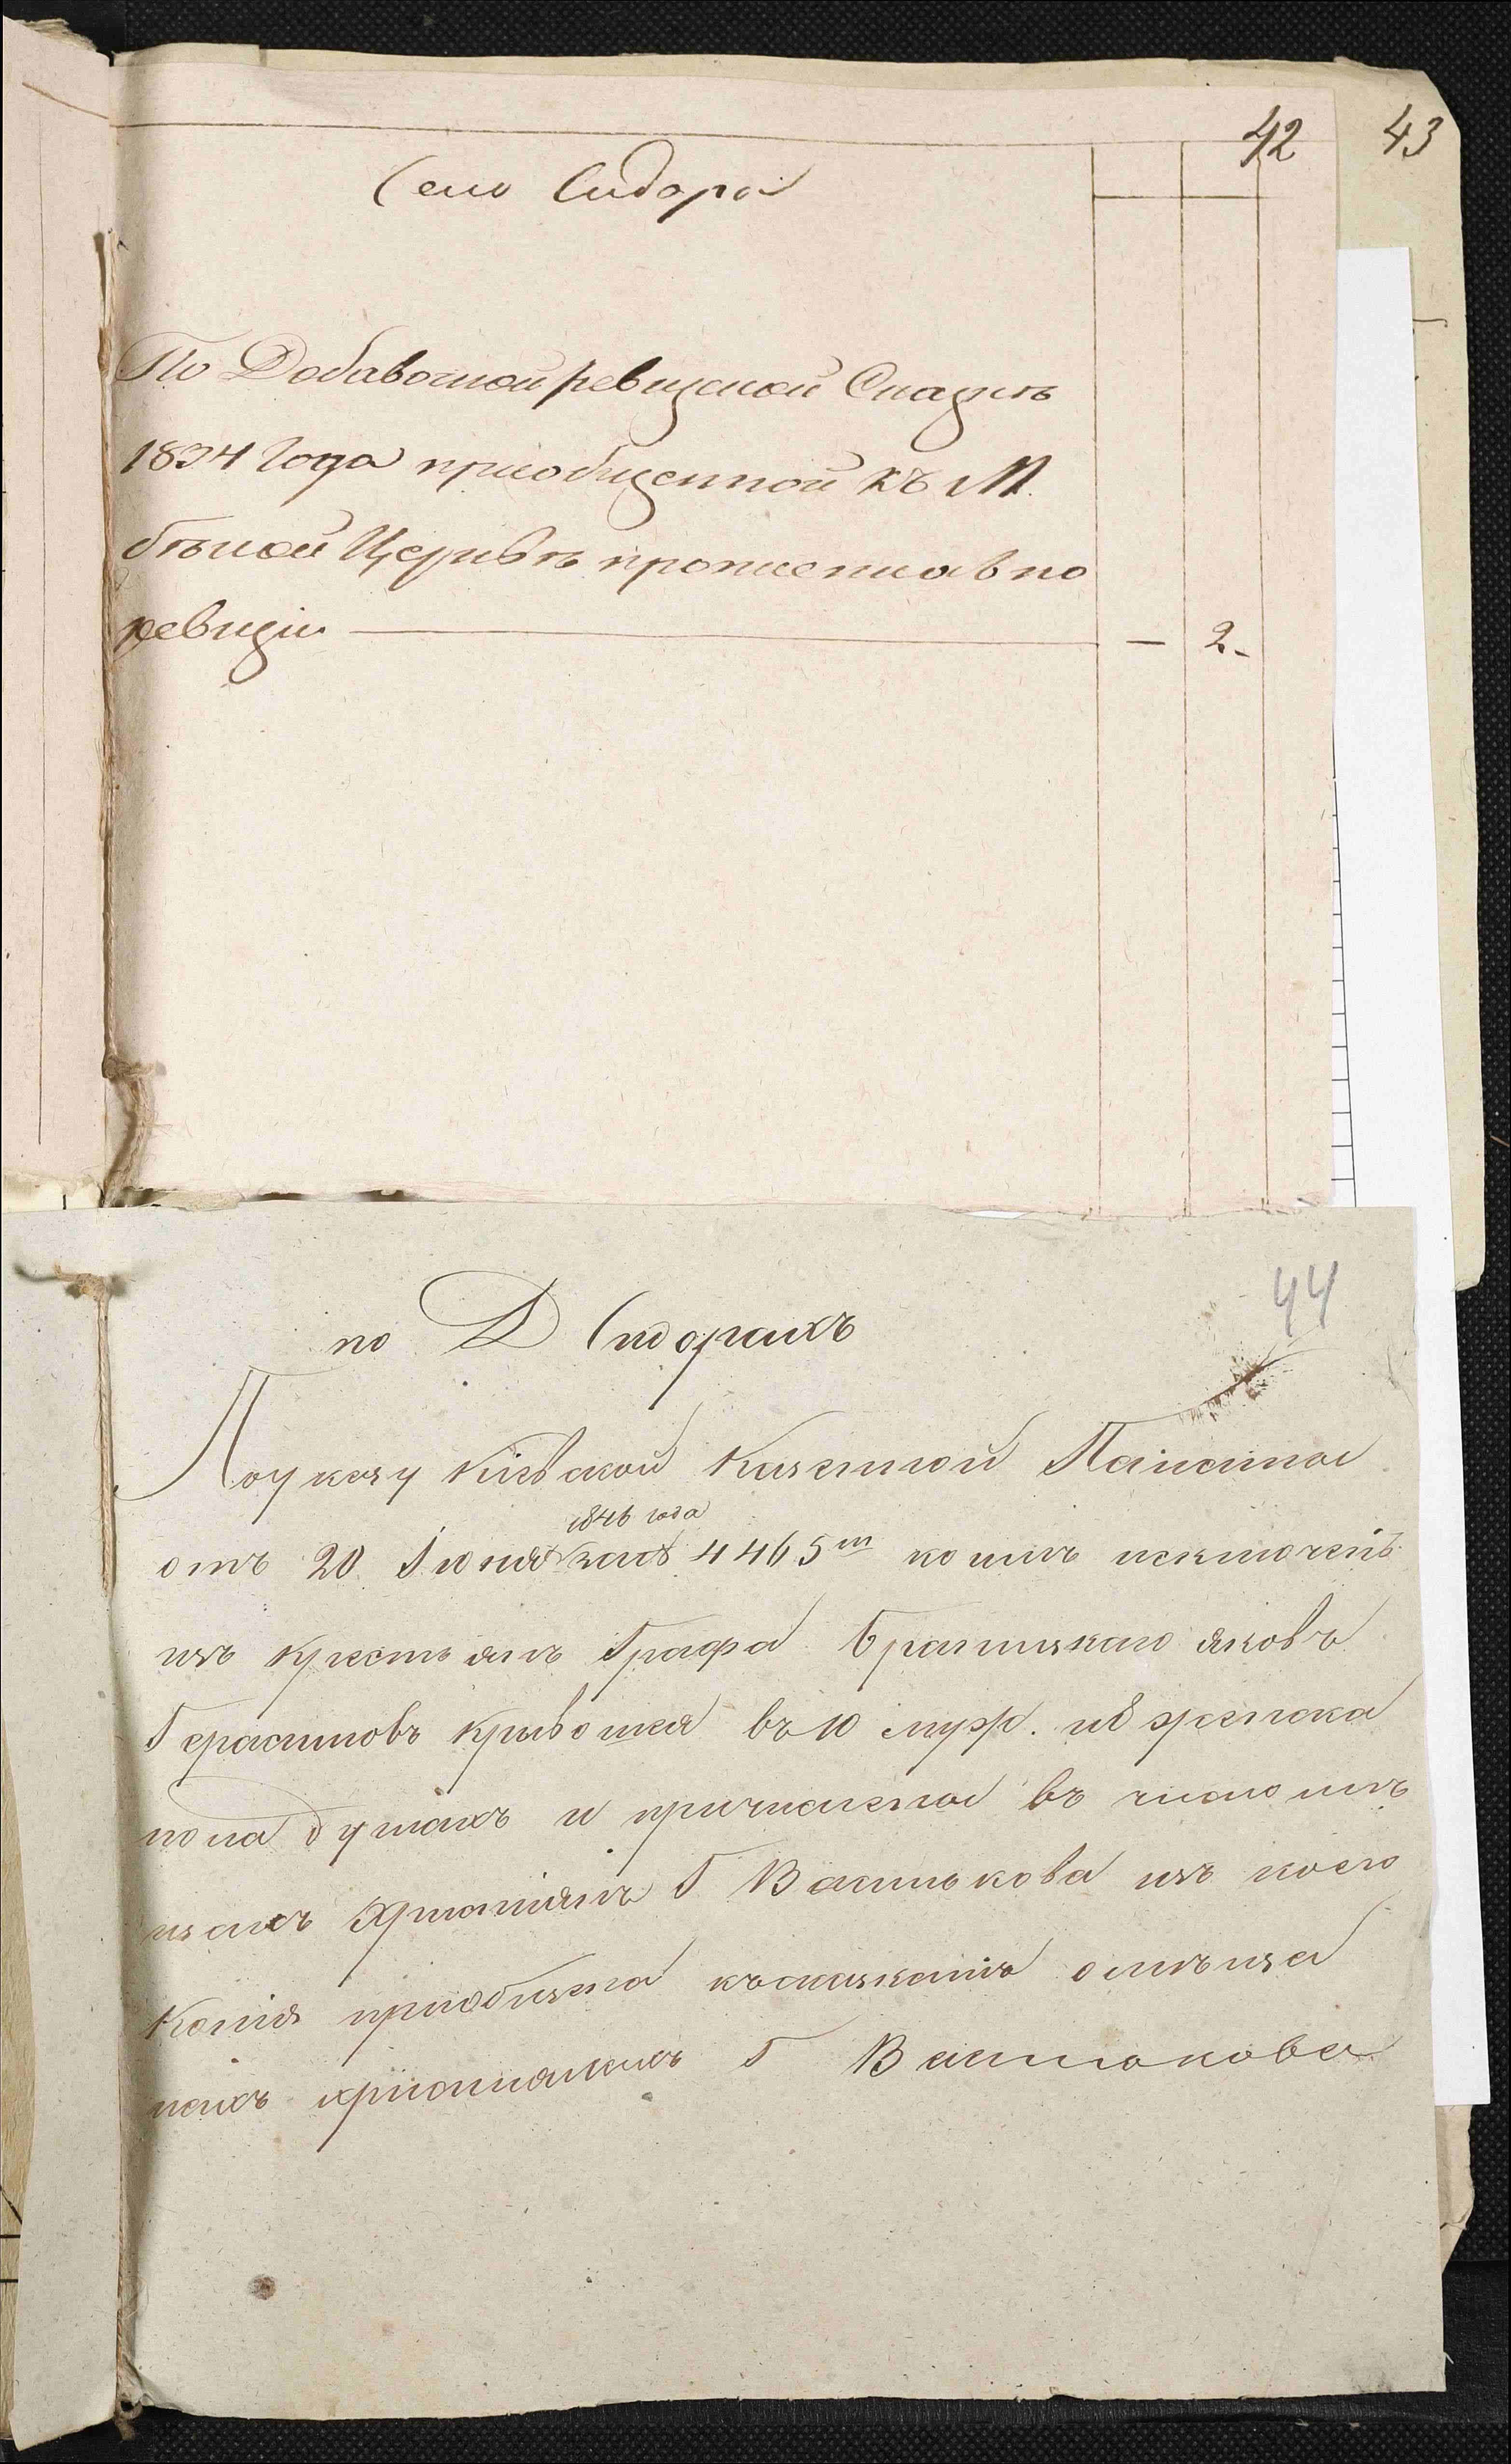 42 43
Село Сидора
По Добавочной ревизской Сказкѣ
1834 Года приобщенной къ М.
бѣлой Церквѣ пропис по
ревизіи — — 2.
44
по Д Сидорахъ
По указу Кіевской Казенной Палаты
1846 года
отъ 20 Іюня за № 4465 м коимъ исключенъ
изъ крестьянъ Графа Браницкаго Яковъ
Герасимовъ Кривошея въ 10 муж. и 8 женска
пола душахъ и причисленъ въ число мѣ
щанъ христіянъ Г Василькова изъ коего
копія приобщена къ сказкамъ о мѣща
нахъ христіянахъ Г Василькова